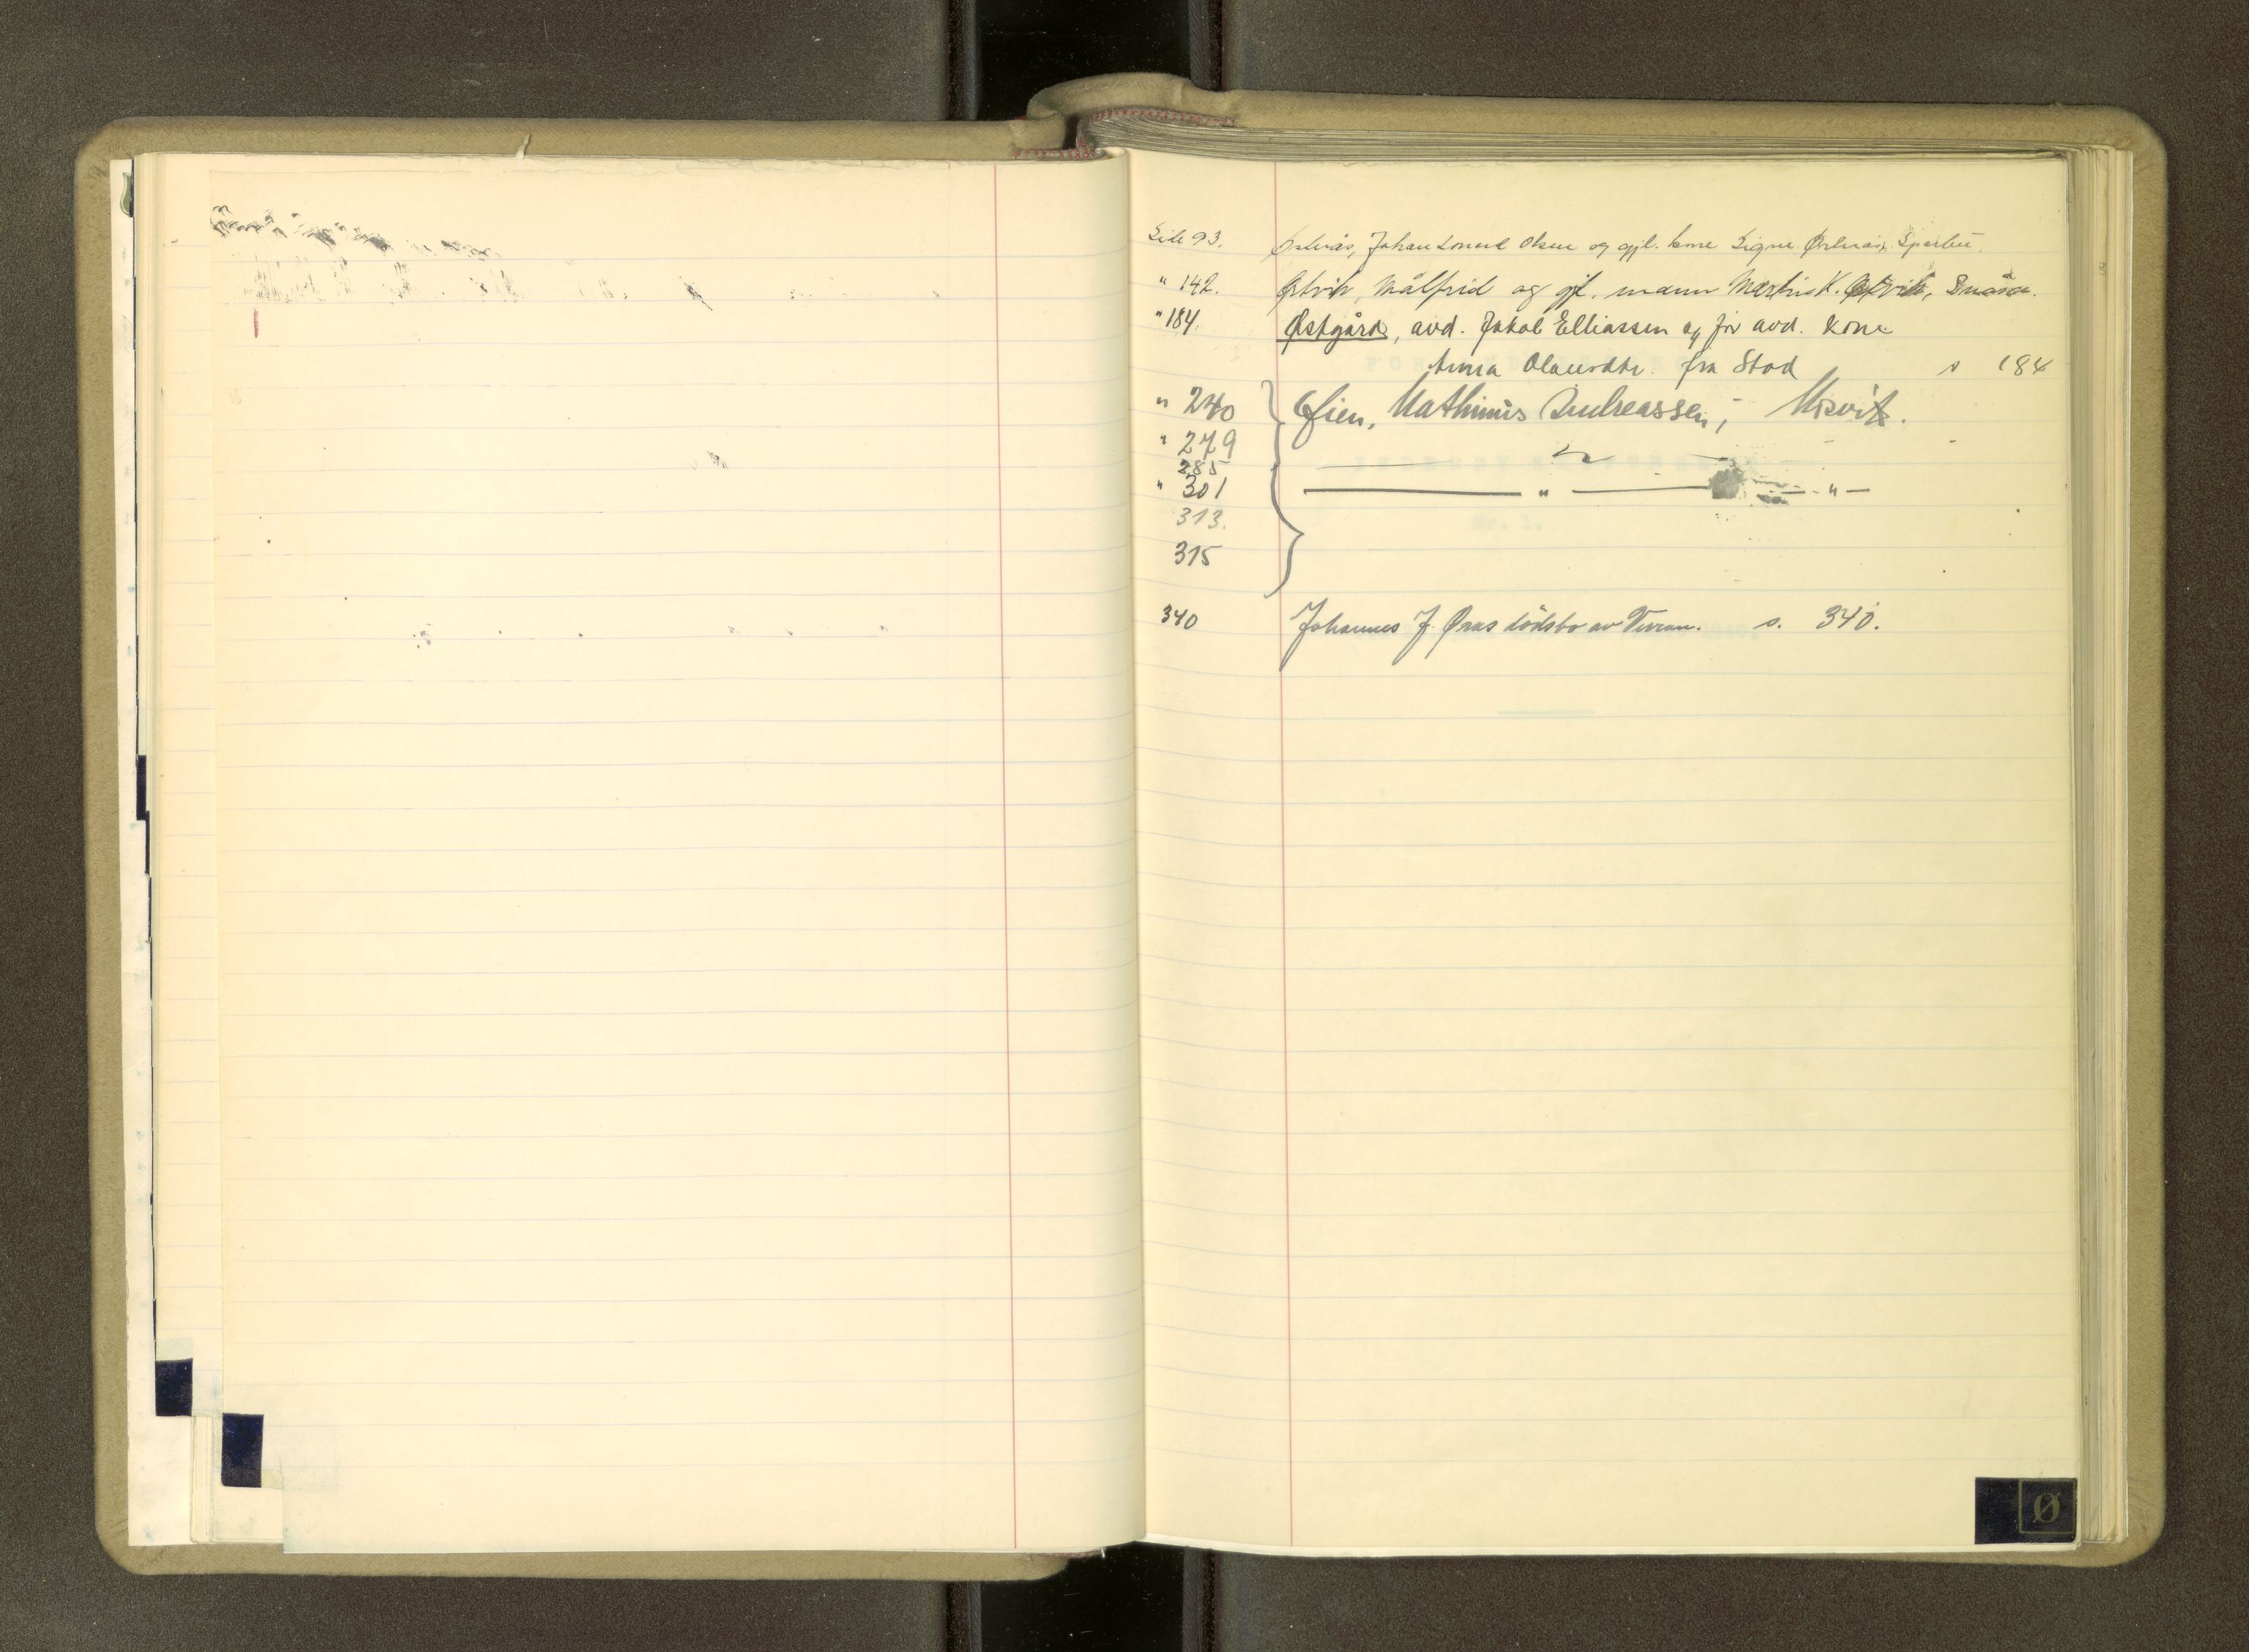 Side 93. Østerås, Johan Lornel Olsen og gjl. kone Signe Østerås, Sparbu.
" 142. Østvik, Målfrid og gjl. mann Martin K. Østvik, Snåsa.
" 184. Østgård, avd. Jakob Elliassen og før avd. kone
Anna Olausdtr. fra Stod s 184
" 240 Øien, Mathinus Andreassen, Mosvik.
" 279 — " — -
285
" 301 — " — — " —
313.
315
340 Johannes J. Øraas dödsbo av Verran. s. 340.
Ø